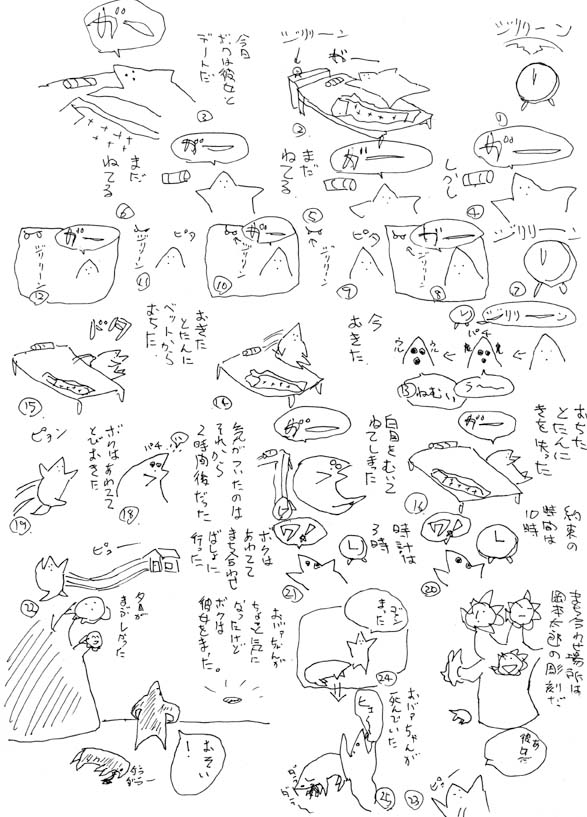 ジリリーン
①
ジリリーン
ガー
②
今日
ボクは彼女と
デートだ
ガー
③
しかし
ガー
④
まだ
ねてる
ガー
⑤
まだ
ねてる
ガー
⑥
ジリリーン
⑦
ガー
ジリリーン
⑧
ピタ
⑨
ジリリーン
ガー
ジリリーン
⑩
ピタ
⑪
ジリリーン
ガー
ジリリーン
⑫
ジリリーン
パチ
うーー
ねむい
⑬
今
おきた
⑭
おきた
とたんに
ベットから
おちた
バタ
⑮
おちた
とたんに
きを失った
ガー
⑯
白目をむいて
ねてしまた
ガー
⑰
気がついたのは
それから
2時間後だった
パチ
⑱
ボクはあわてて
とびおきた
ピョン
⑲
約束の
時間は
10時
ワッ!
⑳
時計は
3時
ワッ!
㉑
ボクは
あわてて
まち合わせ
ばしょに
行った
ピュー
㉒
まち合わせ場所は
岡本太郎の彫刻だ
あ
彼女だ
ピュ
㉓
ゴメン
まった
㉔
おバアちゃんが
死んでいた
ヒェー
㉕
おバアちゃんが
ちょと気に
なったけど
ボクは
彼女をまった。
夕日が
まぶしかった
おそい
!